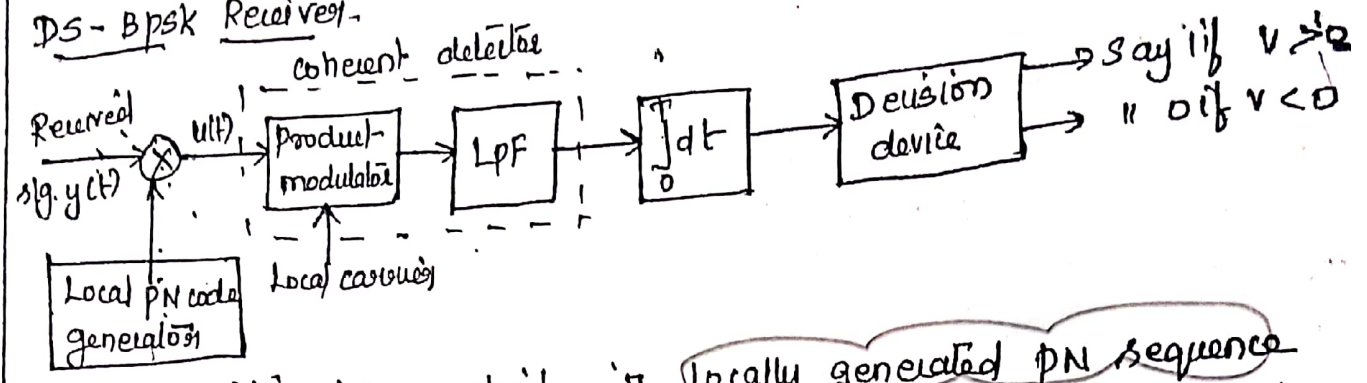 DS-BPSK Receiver.
coherent detector
Received
sig. y(t)
u(t)
Product
modulator
LPF
∫ dt
0
Decision
device
say 1 if v > 0
" 0 if v < 0
Local PN code
generator
Local carrier
locally generated PN sequence